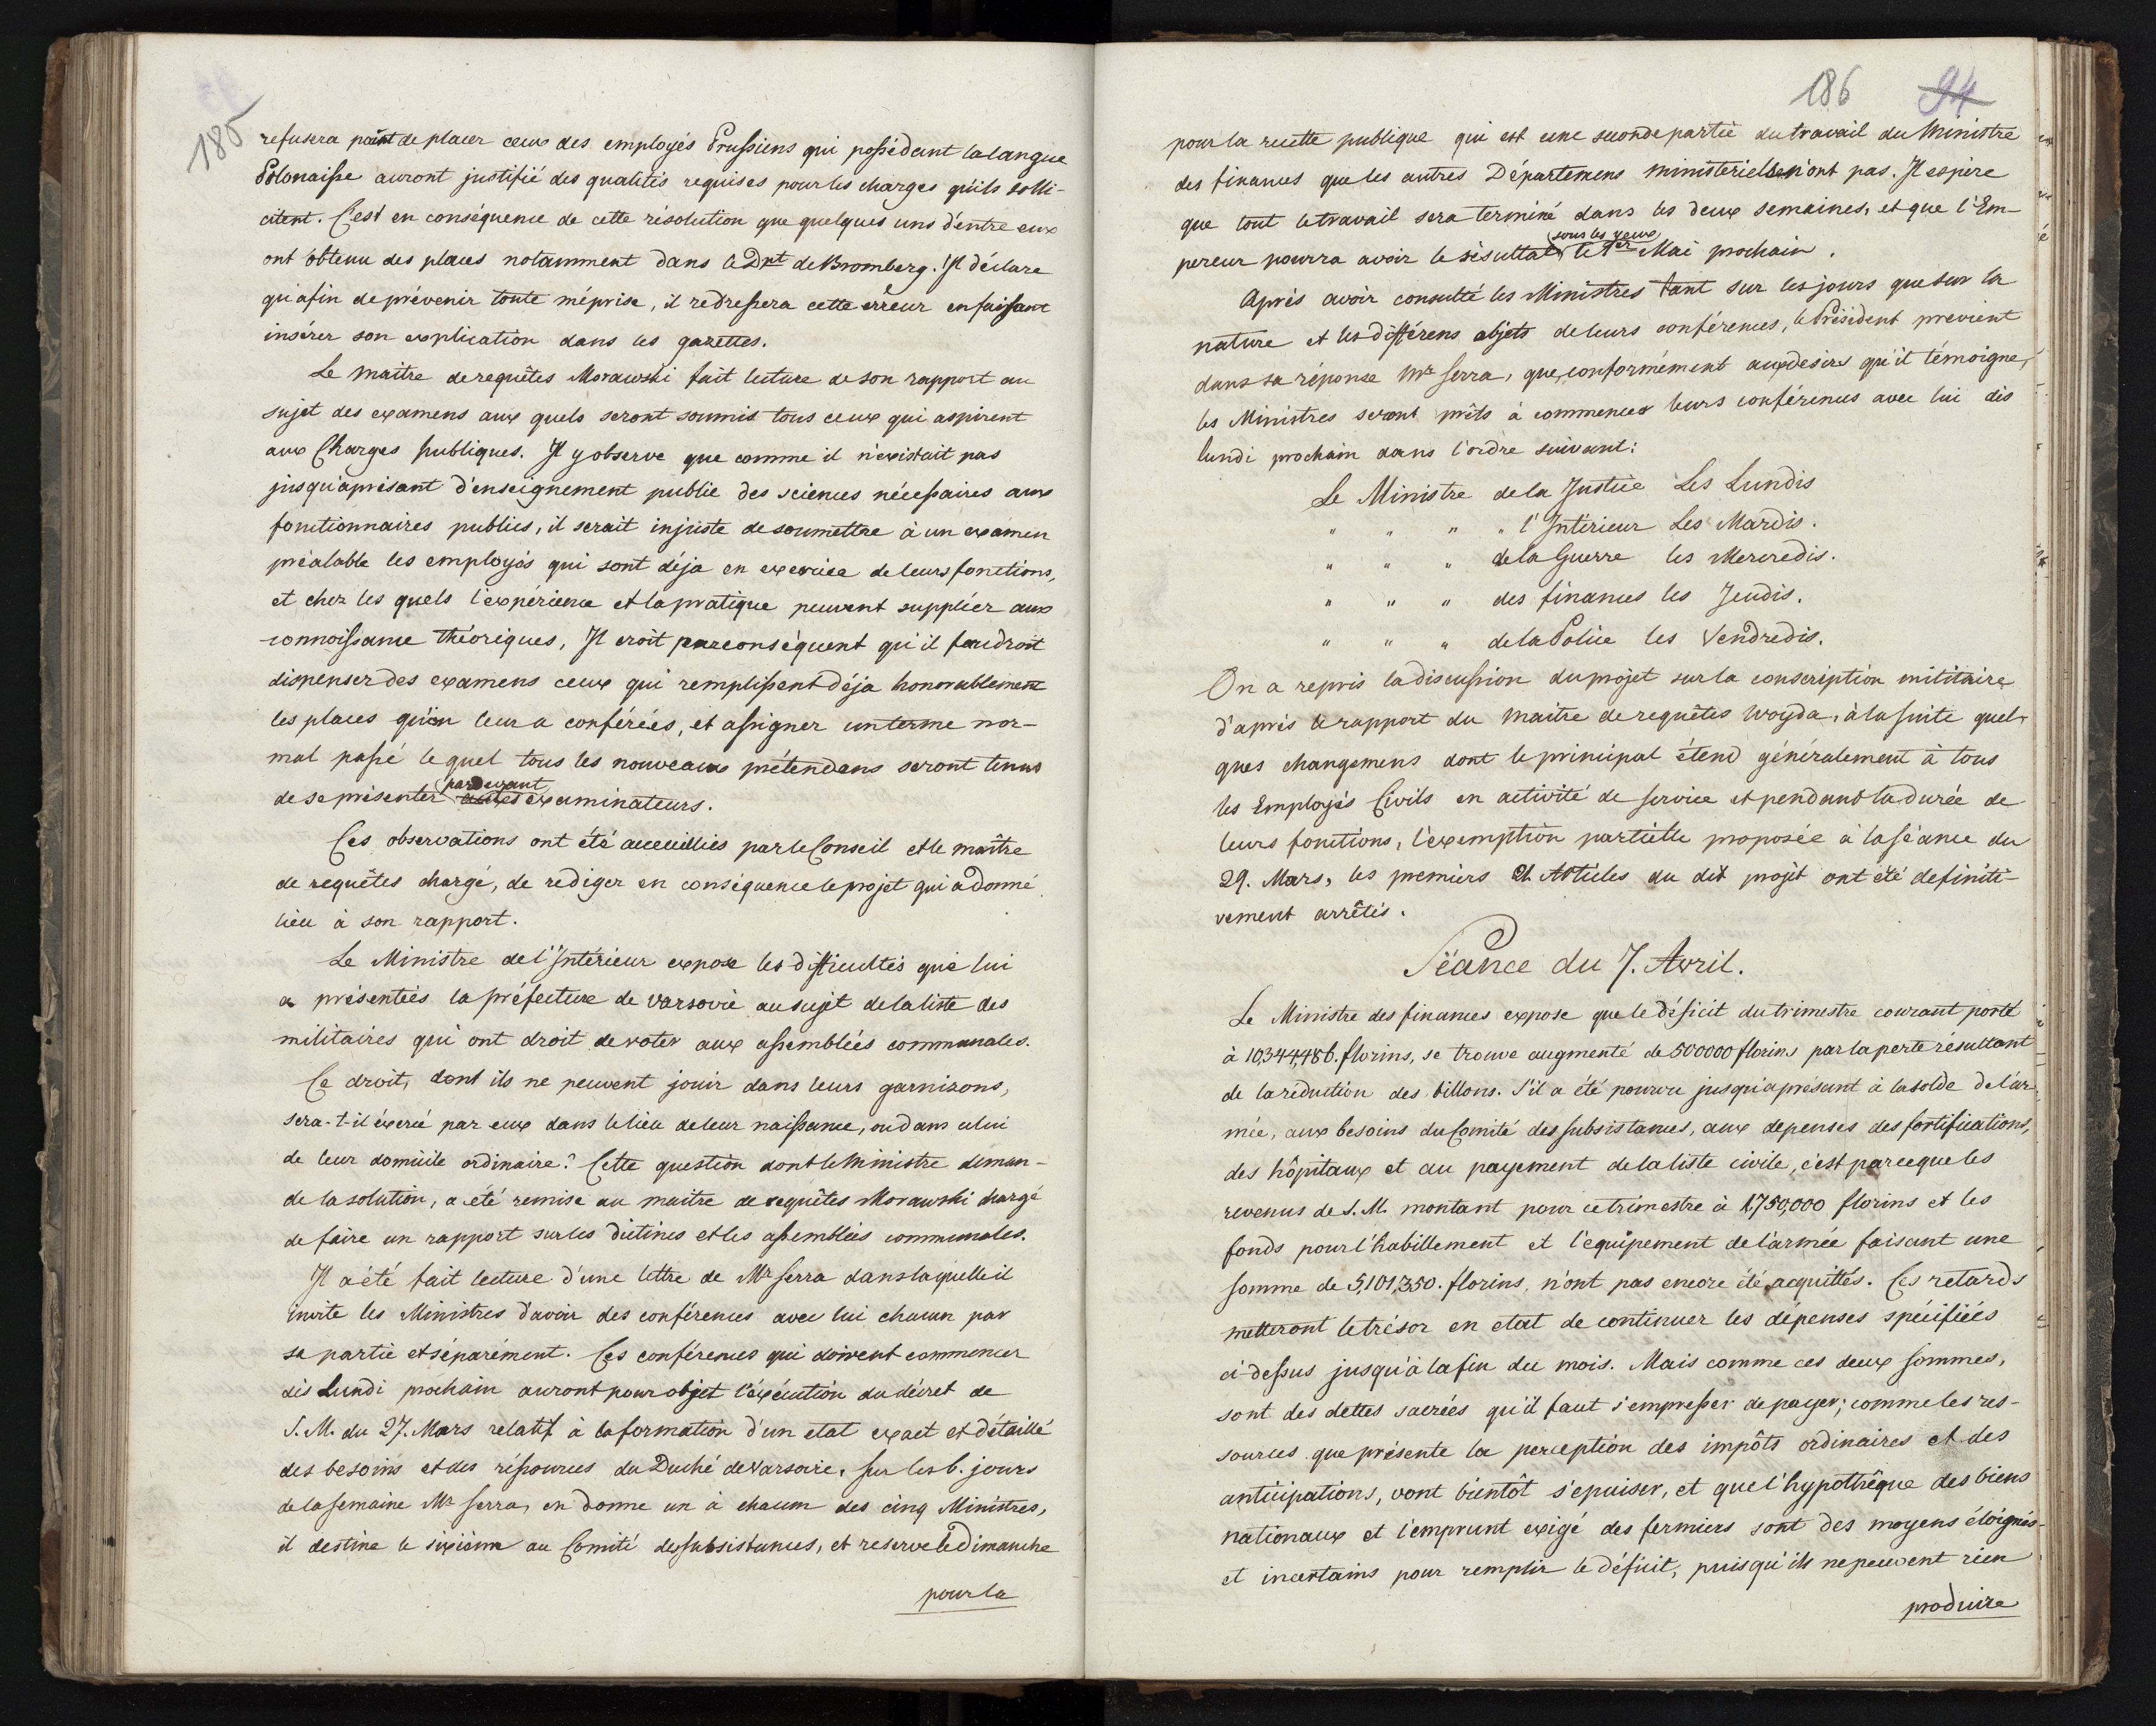 185
refusera point de placer ceux des employés Prussiens qui possédant la langue
Polonaisse auront justifié des qualités requises pour les charges qu'ils solli-
citent. C'est en conséquence de cette résolution que quelques uns d'entre eux
ont obtenu des places notamment dans le Dpt de Bromberg. Il déclare
qu'afin de prévenir toute méprise, il redressera cette erreur en faisant
insérer son explication dans les gazettes.
Le maitre de requêtes Morawski fait lecture de son rapport au
sujet des examens aux quels seront soumis tous ceux qui aspirent
aux Charges publiques. Il y observe que comme il n'existait pas
jusqu'aprésant d'enseignement public des sciences nécessaires aux
fonctionnaires publics, il serait injuste de soumettre à un examen
préalable les employés qui sont déja en exercice de leurs fonctions,
et chez les quels l'expérience et la pratique peuvent supplier aux
connoissance théoriques, Il croit parconséquent qu'il faudroit
dispenser des examens ceux qui remplissent déja honorablement
les places qu'on leur a conférées, et assigner un terme nor-
mal passé lequel tous les nouveaux prétendans seront tenus
pardevant
de se présenter aux examinateurs.
Ces observations ont été accueillies par le Conseil et le maître
de requêtes chargé, de rediger en conséquence le projet qui a donné
lieu à son rapport.
Le Ministre de l'Intérieur expose les difficultés que lui
a présentées la préfecture de Varsovie au sujet de la liste des
militaires qui ont droit de voter aux assemblées communales.
Ce droit, dont ils ne peuvent jouir dans leurs garnizons,
sera-t-il éxercé par eux dans le lieu de leur naissance, ou dans celui
de leur domicile ordinaire? Cette question dont le Ministre deman-
de la solution, a été remise au maitre de requêtes Morawski chargé
de faire un rapport sur les diétines et les assemblées communales.
Il a été fait lecture d'une lettre de Mr Serra dans laquelle il
invite les Ministres d'avoir des conférences avec lui chacun par
sa partie et séparément. Ces conférences qui doivent commencer
dès Lundi prochain auront pour objet l'éxécution du décret de
S. M. du 27. Mars relatif à la formation d'un etat exact et détaillé
des besoins et des réssources du Duché de Varsovie. Sur les 6. jours
de la semaine Mr Serra, en donne un à chacun des cinq Ministres,
il destine le sixième au Comité des subsistances, et reserve le Dimanche
pour la
186 94
pour la recette publique qui est une seconde partie du travail du Ministre
des finances que les autres Départemens ministériels n'ont pas. Il espère
que tout le travail sera terminé dans les deux semaines, et que l'Em-
sous les yeux
pereur pourra avoir le résultat le 1er Mai prochain.
Après avoir consulté les Ministres tant sur les jours que sur la
nature et les différens objets de leurs conférences, le Président prévient
dans sa réponse Mr Serra, que, conformément aux desirs qu'il témoigne,
les Ministres seront prêts à commencer leurs conférences avec lui dès
lundi prochain dans l'ordre suivant:
Le Ministre de la Justice Les Lundis
" " " " l'Intérieur Les Mardis.
" " " de la Guerre les Mercredis.
" " " des finances les Jeudis.
" " " de la Police les Vendredis.
On a repris la discussion du projet sur la conscription militaire
d'après le rapport du maitre de requêtes Woyda, à la suite quel-
ques changemens dont le principal étend généralement à tous
les Employés Civils en activité de service et pendant la durée de
leurs fonctions, l'exemption partielle proposée à la séance du
29. Mars, les premiers 21. Articles du dit projèt ont été definiti-
vement arrêtés.
Séance du 7. Avril.
Le Ministre des finances expose que le déficit du trimestre courant porté
à 10,344,486. florins, se trouve augmenté de 500000 florins par la perte résultant
de la réduction des billons. S'il a été pourvu jusqu'aprésant à la solde de l'ar-
mée, aux besoins du Comité des subsistances, aux depenses des fortifications,
des hôpitaux et au payement de la liste civile, c'est parceque les
revenus de S. M. montant pour ce trimestre à 1,750,000 florins et les
fonds pour l'habillement et l'equipement de l'armée faisant une
somme de 5,101,350. florins, n'ont pas encore été acquittés. Ces retards
metteront le trésor en etat de continuer les dépenses spécifiées
ci-dessus jusqu'à la fin du mois. Mais comme ces deux sommes,
sont des dettes sacrées qu'il faut s'empresser de payer; comme les res-
sources que présente la perception des impôts ordinaires et des
anticipations, vont bientôt s'epuiser, et que l'hypothêque des biens
nationaux et l'emprunt exigé des fermiers sont des moyens éloignés
et incertains pour remplir le déficit, puisqu'ils ne peuvent rien
produire